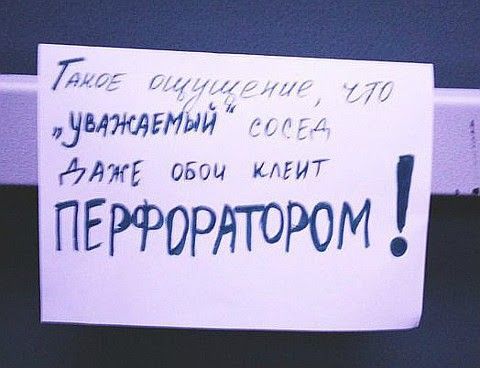 Такое ощущение, что
„УВАЖАЕМЫЙ“ СОСЕД
ДАЖЕ ОБОИ КЛЕИТ
ПЕРФОРАТОРОМ!